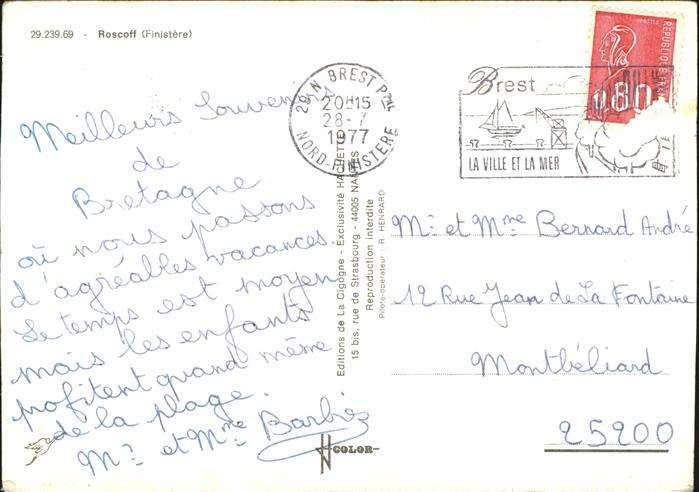 29.239.69 - Roscoff (Finistère)
Meilleurs Souvenirs
de
Bretagne
où nous passons
d'agréables vacances.
Le temps est moyen
mais les enfants
profitent quand même
de la plage.
Mr et Mme Barbier
29 N BREST Pal
20H15
28-7
1977
NORD-FINISTERE
Brest
LA VILLE ET LA MER
0.80
REPUBLIQUE
Editions de La Cigogne - Exclusivité HACHETTE
15 bis, rue de Strasbourg - 44005 NANTES
Reproduction interdite
Pilote-opérateur : R. HENRARD
COLOR
Mr et Mme Bernard André
12 Rue Jean de La Fontaine
Montbéliard
25200